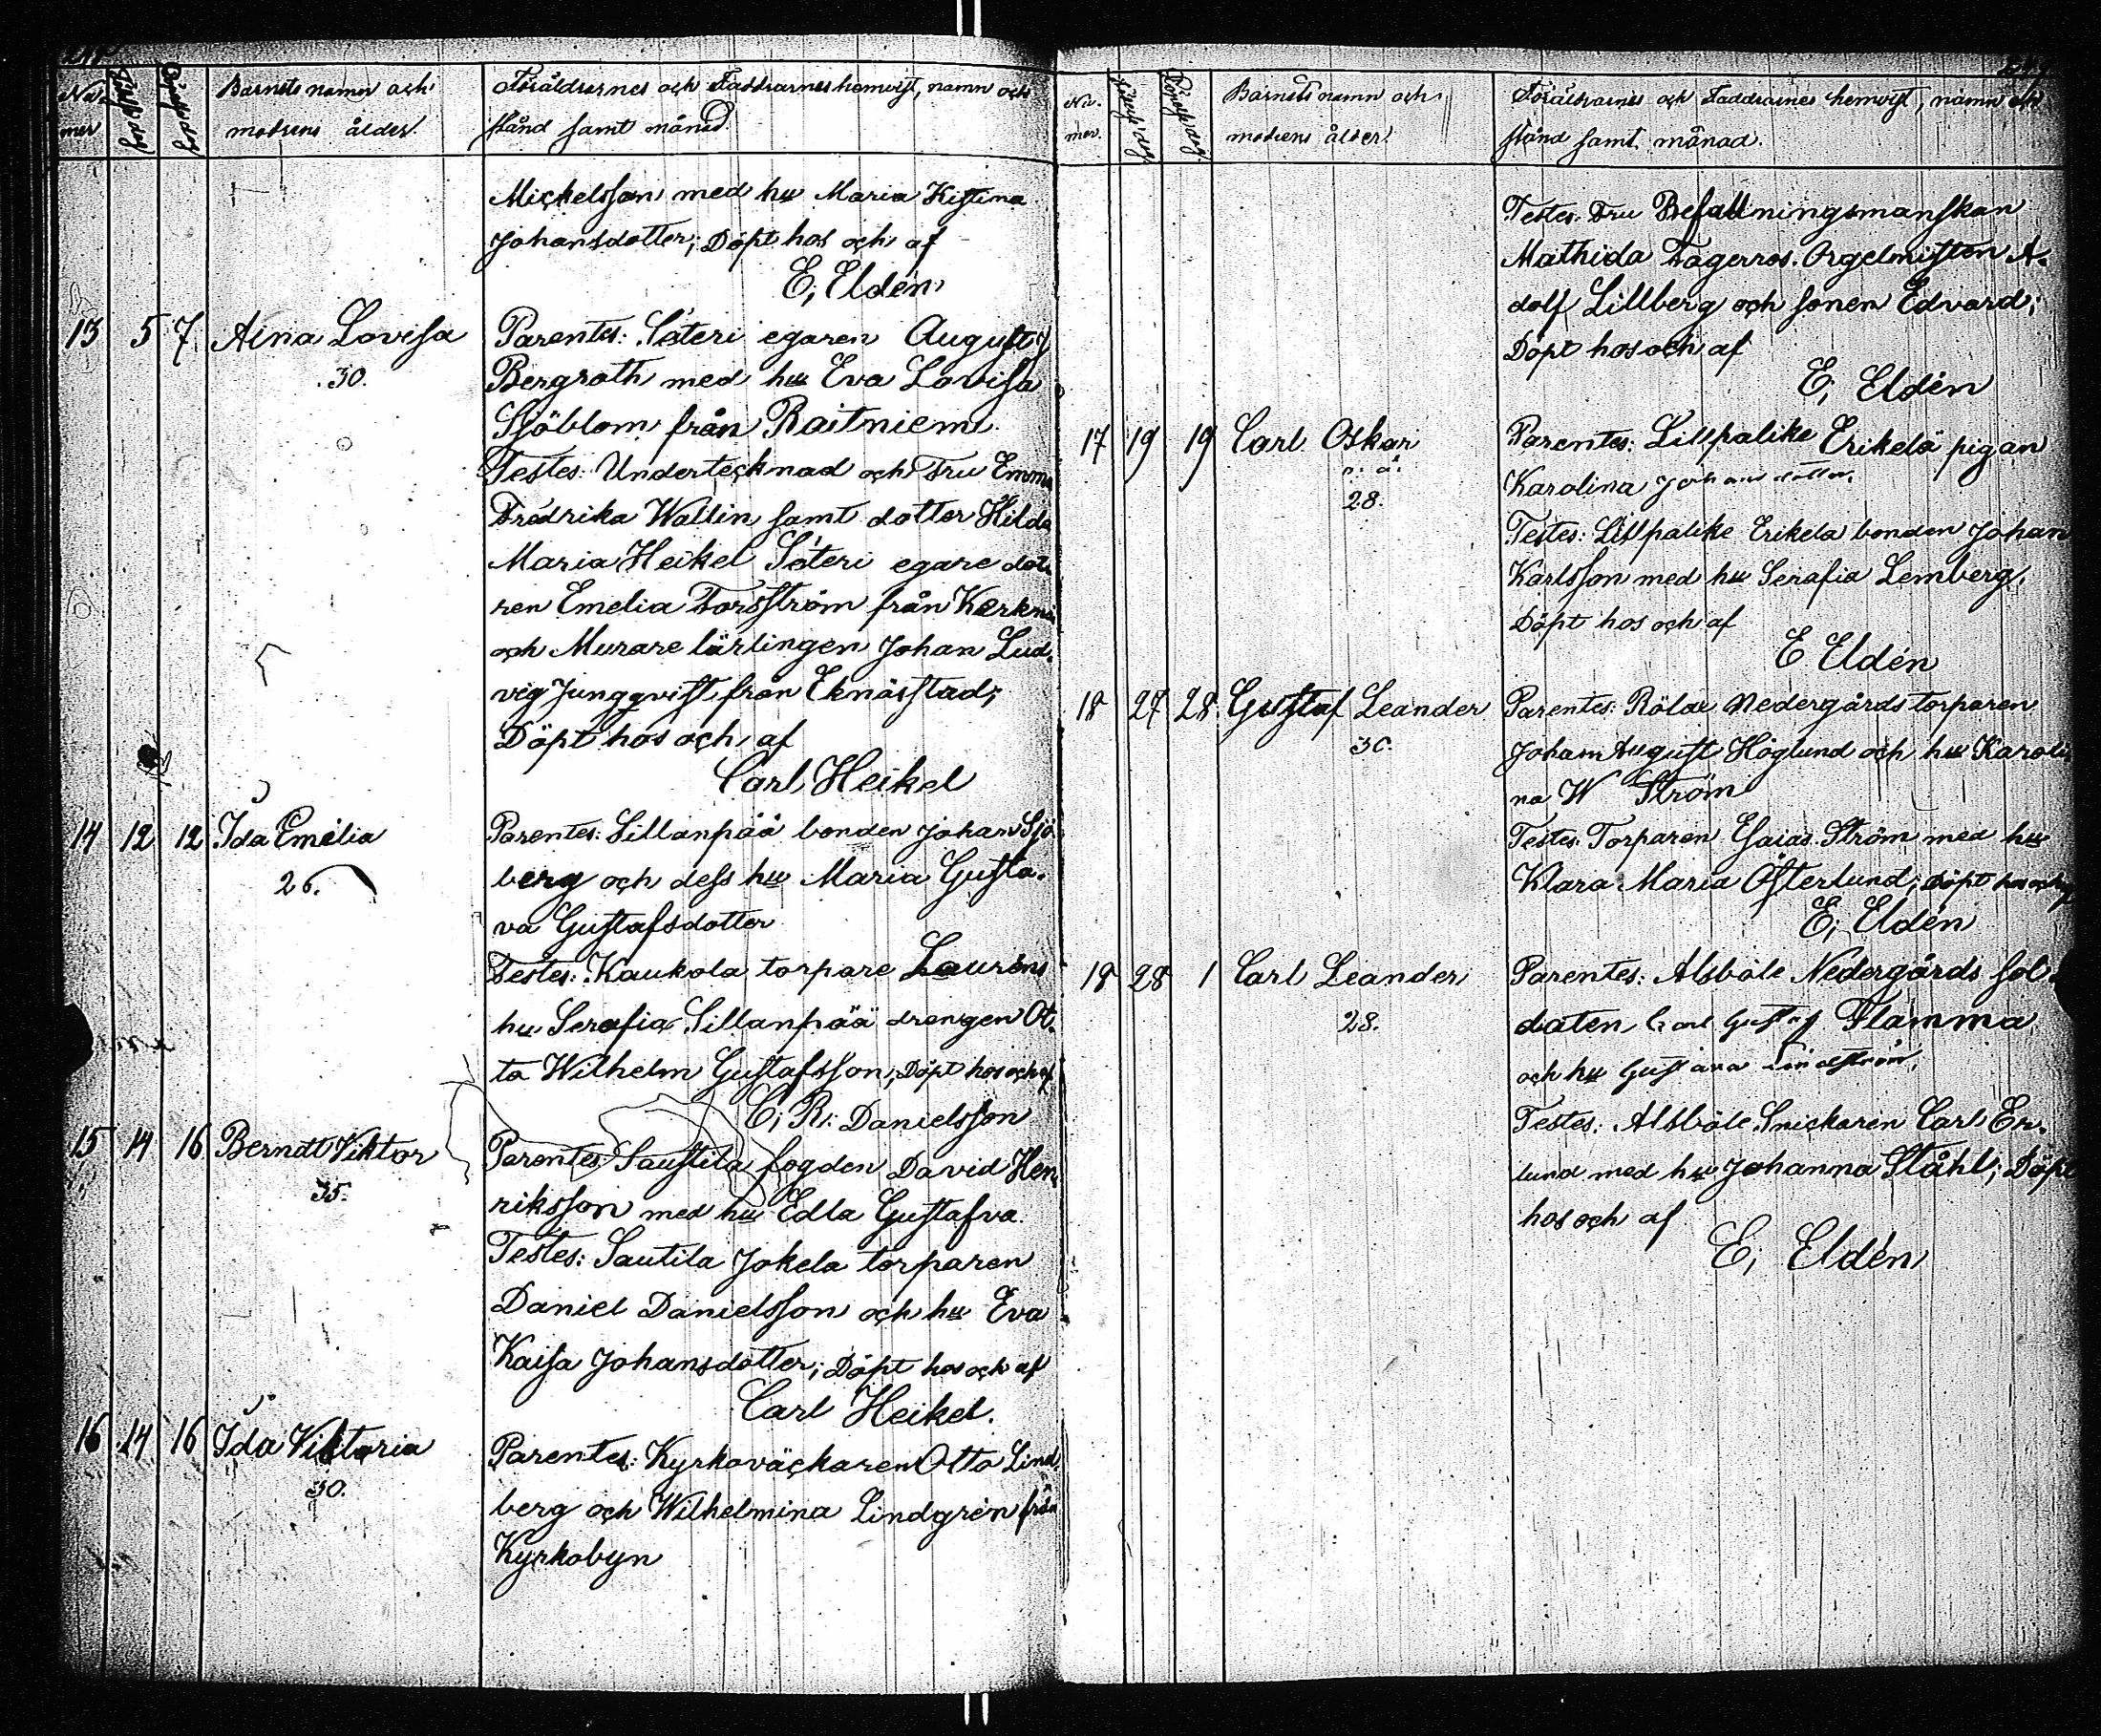 Barnets namn och
modrens ålder.
Föräldrernes och Faddrarnes hemvist, namn och
stånd samt månad.
Michelsson med hu Maria Kistina
Johansdotter; Döpt hos och af
E, Eldén
13 5 7 Aina Lovisa
30.
Parentes: Säteri egaren August
Bergroth med hu Eva Lovisa
Sjöblom från Raitniemi
Testes: Undertecknad och Fru Emma
Fredrika Wallin samt dotter Hilda
Maria Heikel Säteri egare dott
ren Emelia Forsström från Kerknäs
och Murare lärlingen Johan Lud.
vig Jungqvist från Eknässtad;
Döpt hos och af
Carl Heikel
14 12 12 Ida Emelia
26.
Parentes: Sillanpää bonden Johan Sjö
berg och dess hu Maria Gusta.
va Gustafsdotter
Testes: Kaukola torpare Lauréns
hu Serafia Sillanpää drengen Ot.
to Wilhelm Gustafsson; Döpt hos och af
C; R: Danielsson
15 14 16 Berndt Viktor
35.
Parentes: Saustila fogden David Hen
riksson med hu Edla Gustafva.
Testes: Sautila Jokela torparen
Daniel Danielsson och hu Eva
Kaisa Johansdotter; Döpt hos och af
Carl Heikel.
16 14 16 Ida Viktoria
30.
Parentes: Kyrkoväckaren Otto Lind
berg och Wilhelmina Lindgrén från
Kyrkobyn
Nu.
mer.
Födelse dag
Döpelse dag
Barnets namn och
modrens ålder.
Föräldrarnes och Faddrarnes hemvist, namn och
stånd samt månad.
Testes: Fru Befallningsmanskan
Mathida Fagerros. Orgelnisten A.
dolf Lillberg och sonen Edvard;
Döpt hos och af
E, Eldén
17 19 19 Carl Oskar
o. ä.
28.
Parentes: Lillpalike Erikelä pigan
Karolina Johansdotter.
Testes: Lillpalike Erikela bonden Johan
Karlsson med hu Serafia Lemberg.
Döpt hos och af
E Eldén
18 27 28 Gustaf Leander
30.
Parentes: Rölax Nedergårds torparen
Johan August Höglund och hu Karoli
na W Ström
Testes: Torparen Esaias Ström med hu
Klara Maria Österlund; Döpt hos och af
E, Eldén
18 28 1 Carl Leander
28.
Parentes: Alsböle Nedergårds sol
daten Carl Gustaf Flamma
och hu Gustava Lindström.
Testes: Alsböle Snickaren Carl En.
lund med hu Johanna Ståhl; Döpt
hos och af
E, Eldén